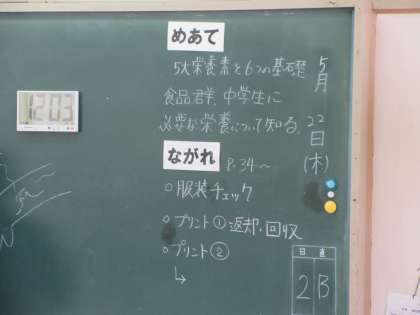 めあて
5大栄養素と6つの基礎
食品群、中学生に
必要な栄養について知る。
ながれ P.34～
○服装チェック
○プリント①返却・回収
○プリント②
↳
5月
22日
(木)
日直
2B
12:03